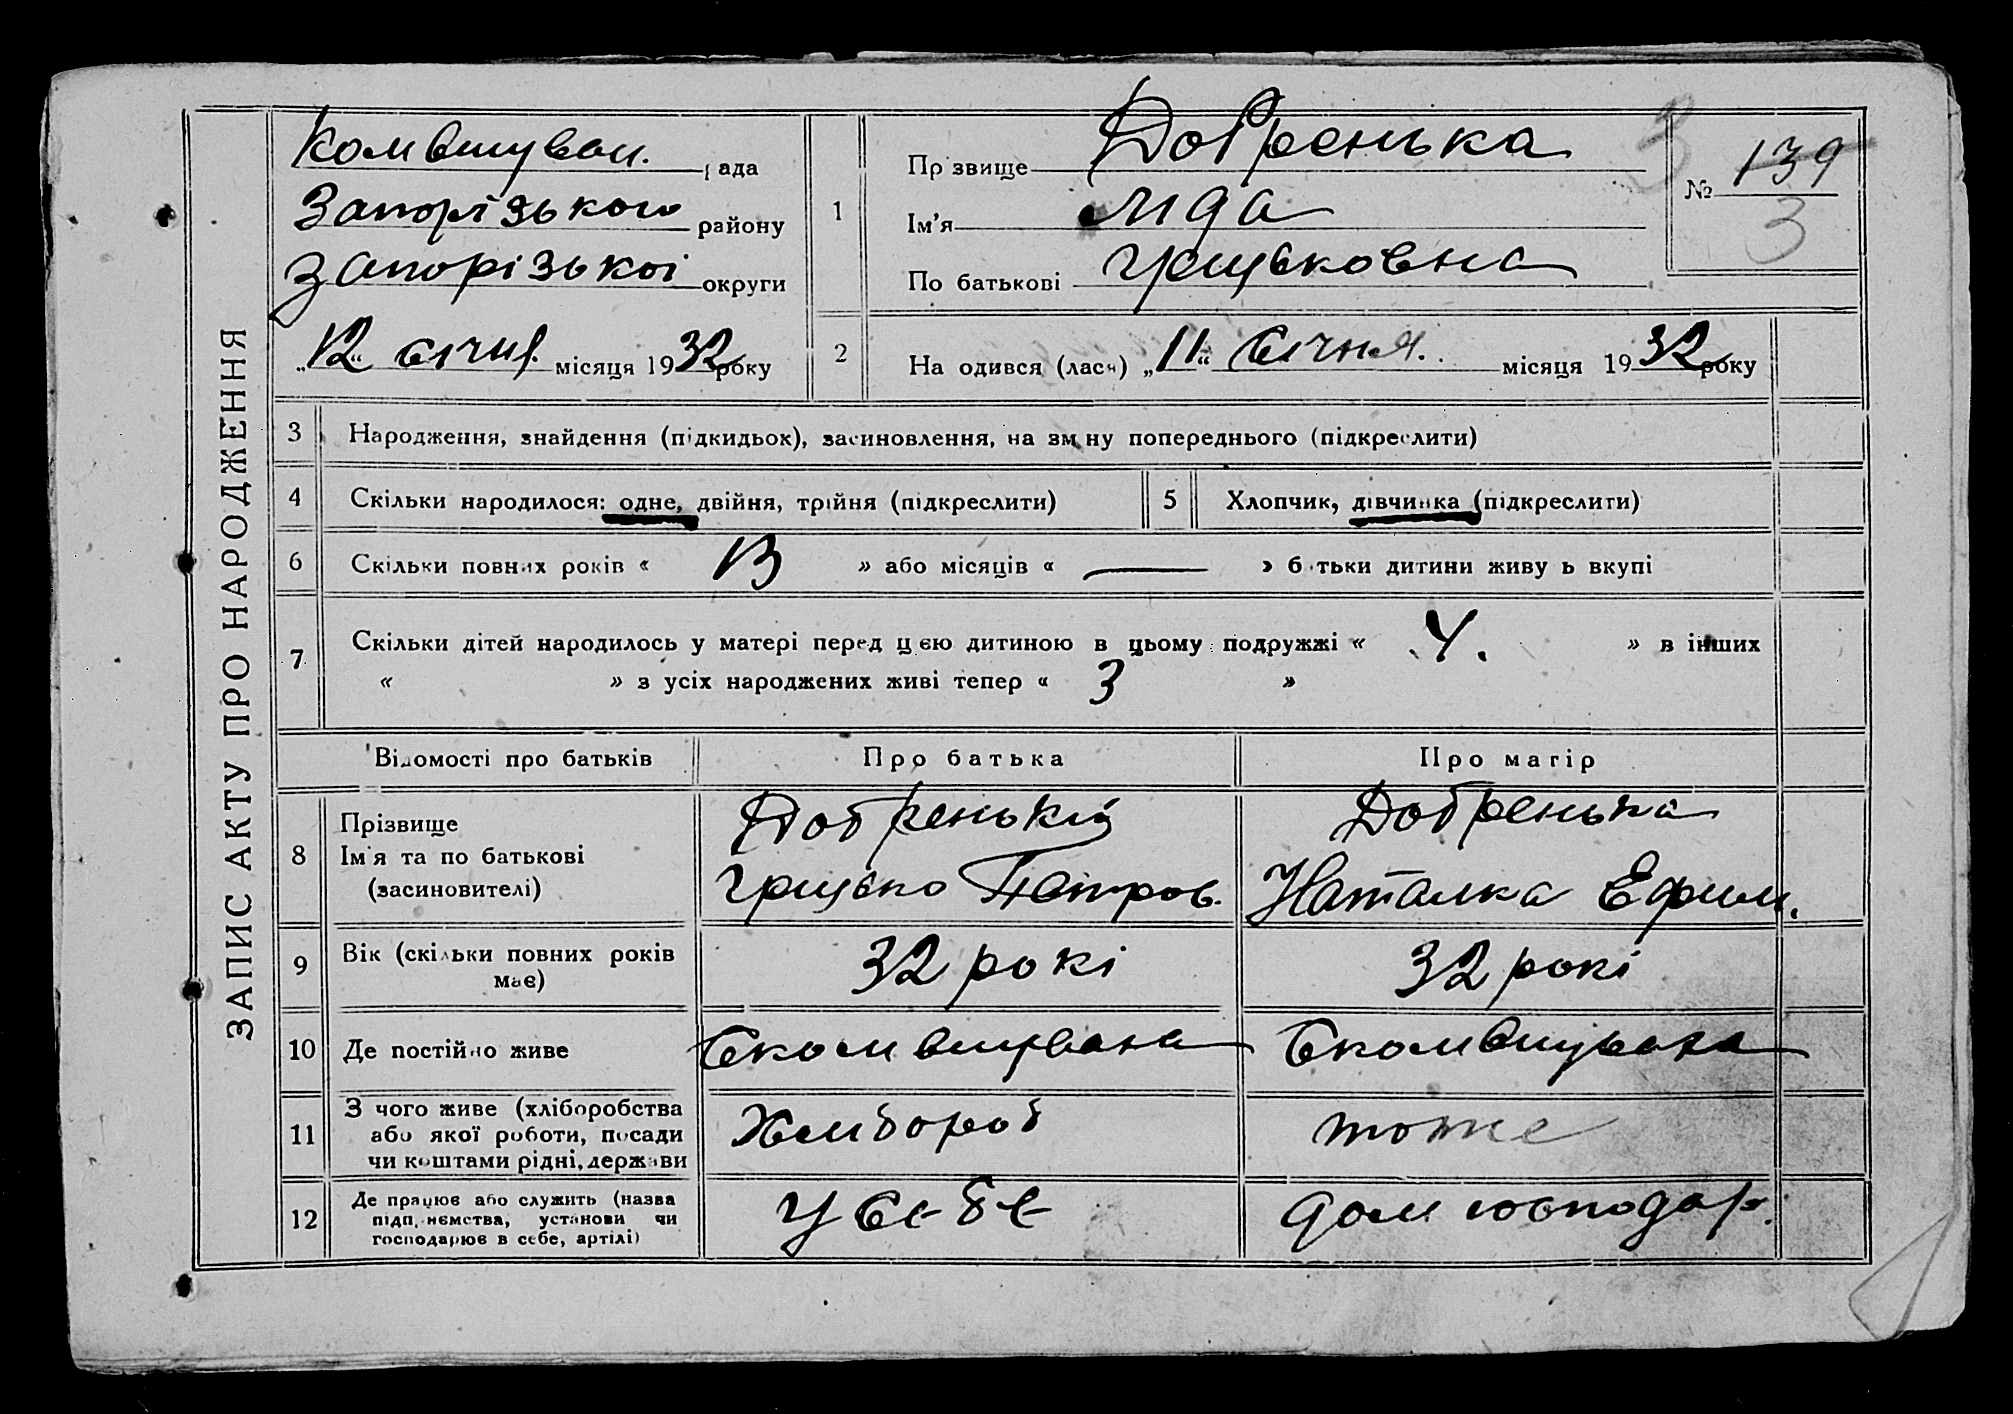 ЗАПИС АКТУ ПРО НАРОДЖЕННЯ
Комвишуван. рада
Запорізького району
Запорізької округи
„12“ січня. місяця 1932 року
1
Прізвище Добренька
Ім’я Ліда
По батькові Грицьковна
№ 139
3
3
2
На одився (лася) „11“ Січня. місяця 1932 року
3 Народження, знайдення (підкидьок), засиновлення, на зміну попереднього (підкреслити)
4 Скільки народилося: одне, двійня, трійня (підкреслити)
5 Хлопчик, дівчинка (підкреслити)
6 Скільки повних років « 13 » або місяців « — » батьки дитини живуть вкупі
7 Скільки дітей народилось у матері перед цією дитиною в цьому подружжі « 4. » в інших
« » з усіх народжених живі тепер « 3 »
Відомості про батьків Про батька Про матір
8 Прізвище
Ім’я та по батькові
(засиновителі)
Добренький
Грицько Петров.
Добренька
Наталка Ефим.
9 Вік (скільки повних років
має)
32 рокі
32 рокі
10 Де постійно живе
Скомвишувана
Скомвишувана
11 З чого живе (хліборобства
або якої роботи, посади
чи коштами рідні, держави
Хлибороб
тоже
12 Де працює або служить (назва
підприємства, установи чи
господарює в себе, артілі)
У себе
дом господар.